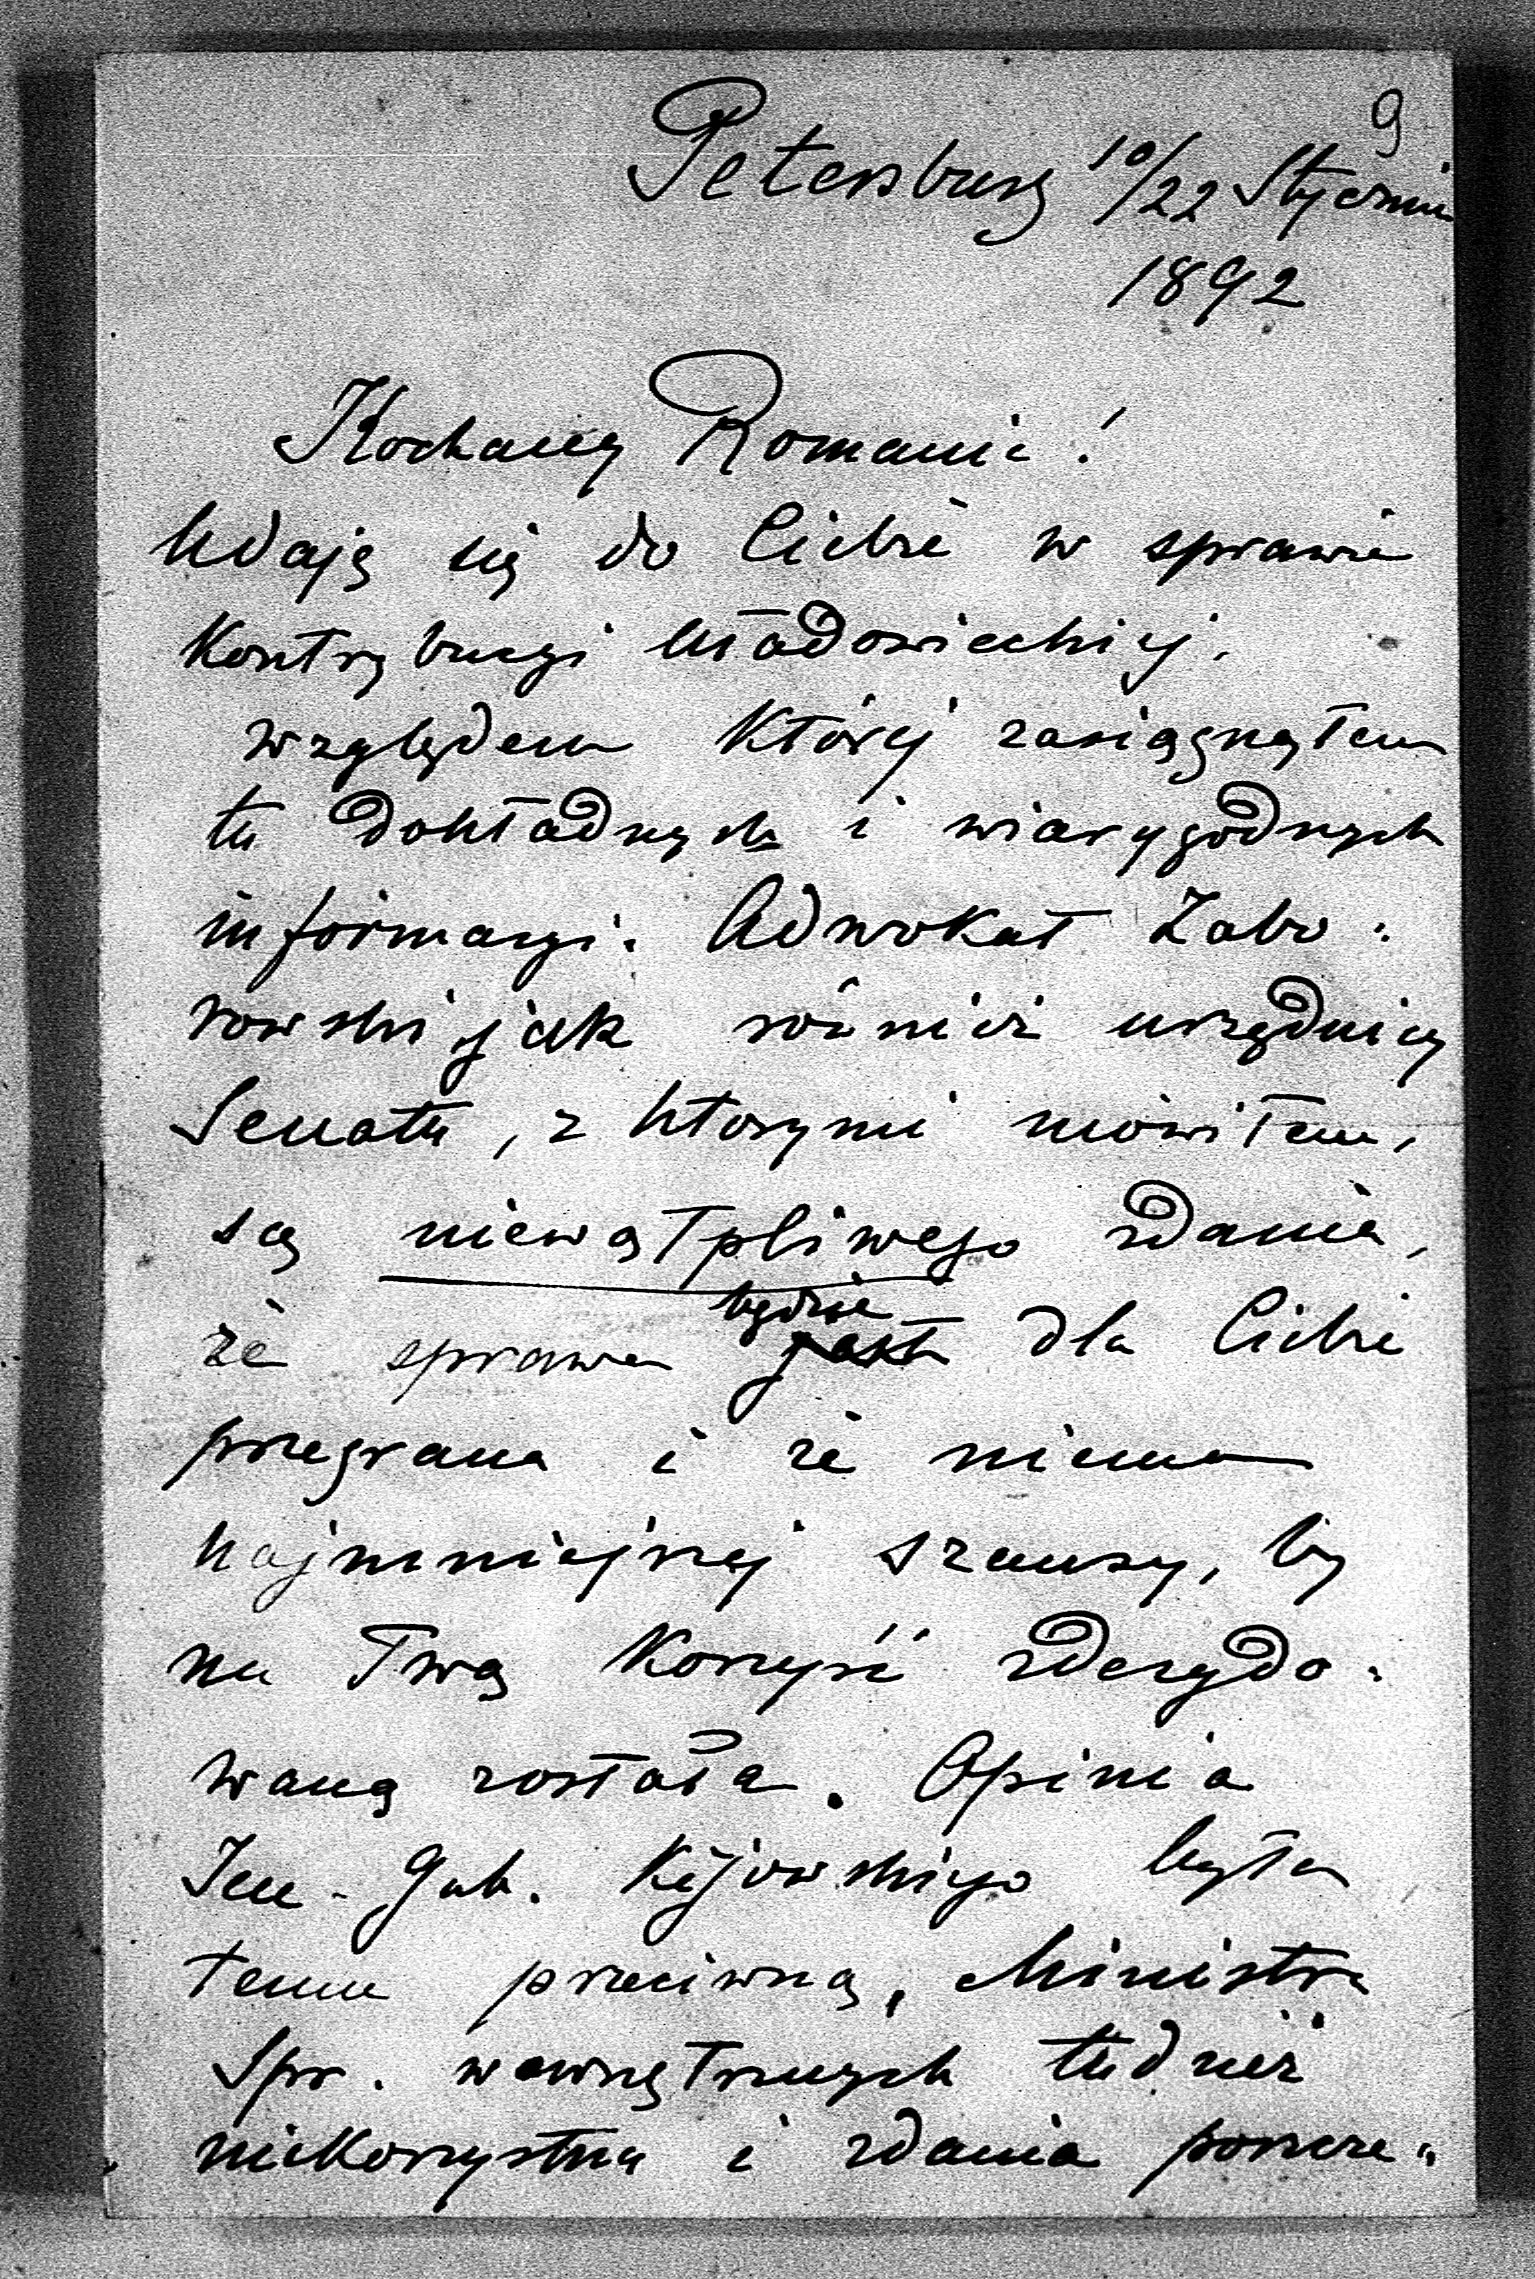 9
Petersburg 10/22 Stycznia
1892
Kochany Romanie!
Udaję się do Ciebie w sprawie
Kontrybucyi
względem której zasięgnąłem
tu dokładnych i wiarygodnych
informacyi. Adwokat Zabo-
rowski jak również urzędnicy
Senatu, z ktorymi mówiłem,
są niewątpliwego zdania,
że sprawa będzie dla Ciebie
przegrana i że niema
najmniejszej szansy, by
na Twą Korzyść zdecydo-
waną została. Opinia
Jen-Gub. Kijowskiego była
temu przeciwną, Ministra
Spr. wewnętrznych tudzież
niekorzystna i zdania poszcze-